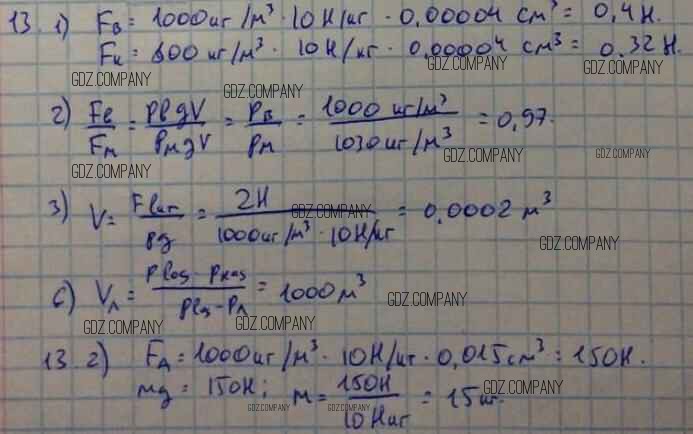 13. 1) Fв = 1000 кг/м³ · 10 Н/кг · 0,00004 см³ = 0,4 Н.
Fк = 800 кг/м³ · 10 Н/кг · 0,00004 см³ = 0,32 Н.
GDZ.COMPANY GDZ.COMPANY GDZ.COMPANY
GDZ.COMPANY
2) Fв/Fм = ρвgV/ρмgV = ρв/ρм = 1000 кг/м³ / 1030 кг/м³ = 0,97.
GDZ.COMPANY GDZ.COMPANY GDZ.COMPANY
3) V = / ρg = 2Н / 1000 кг/м³ · 10 Н/кг = 0,0002 м³
GDZ.COMPANY
GDZ.COMPANY
6) Vл = = 1000 м³
GDZ.COMPANY
GDZ.COMPANY GDZ.COMPANY
13. 2) FА = 1000 кг/м³ · 10 Н/кг · 0,015 см³ = 150 Н.
mg = 150 Н; m = 150 Н / 10 Н/кг = 15 кг.
GDZ.COMPANY GDZ.COMPANY GDZ.COMPANY